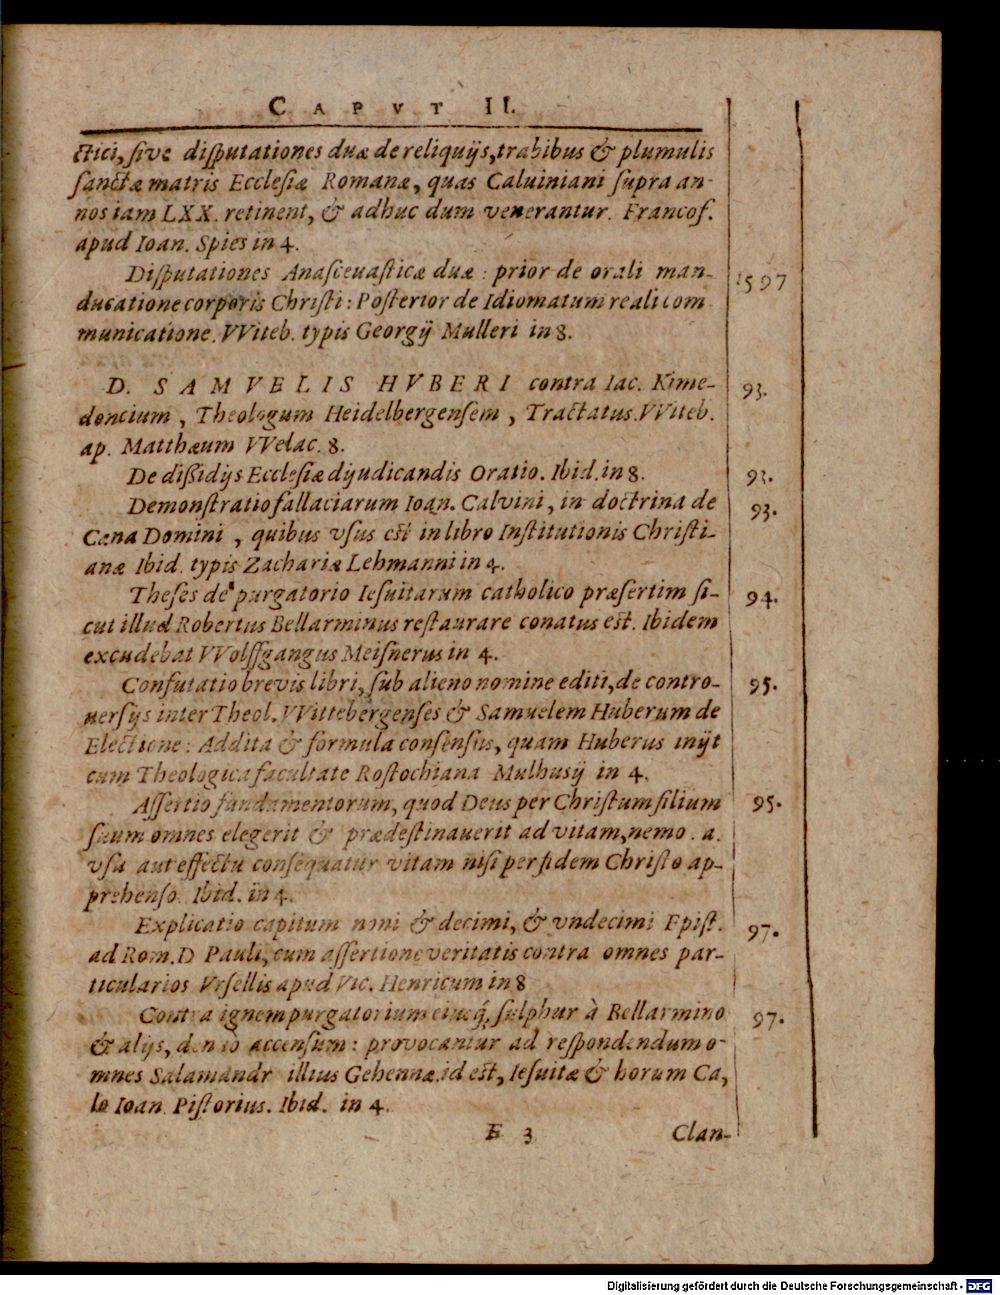 CAPVT II.
ctici, ſive diſputationes duæ de reliquijs, trabibus & plumulis
ſanctæ matris Ecclesiæ Romanæ, quas Caluiniani ſupra an-
nos iam LXX. retinent, & adhuc dum venerantur. Francof.
apud Ioan. Spies in 4.
Diſputationes Anaſceuaſticæ duæ : prior de orali man- 1597
ducatione corporis Chriſti : Poſterior de Idiomatum reali com
municatione. VViteb. typis Georgij Mulleri in 8.
D. SAMVELIS HVBERI contra Iac. Kime- 93.
doncium, Theologum Heidelbergenſem, Tractatus. VViteb.
ap. Matthæum VVelac. 8.
De diſſidijs Eccleſiæ dijudicandis Oratio. Ibid. in 8. 93.
Demonſtratio fallaciarum Ioan. Calvini, in doctrina de 93.
Cœna Domini, quibus vſus eſt in libro Inſtitutionis Chriſti-
anæ Ibid. typis Zachariæ Lehmanni in 4.
Theſes de purgatorio Ieſuitarum catholico præſertim ſi- 94.
cut illud Robertus Bellarminus reſtaurare conatus eſt. Ibidem
excudebat VVolffgangus Meiſnerus in 4.
Confutatio brevis libri, ſub alieno nomine editi, de contro- 95.
uerſijs inter Theol. VVittebergenſes & Samuelem Huberum de
Electione : Addita & formula conſenſus, quam Huberus inijt
cum Theologica facultate Roſtochiana Mulhusij in 4.
Aſſertio fundamentorum, quod Deus per Chriſtum filium 95.
ſuum omnes elegerit & prædeſtinauerit ad vitam, nemo . a.
vſu aut effectu conſequatur vitam niſi per fidem Chriſto ap-
prehenſo. Ibid. in 4.
Explicatio capitum noni & decimi, & vndecimi Epiſt. 97.
ad Rom. D Pauli, cum aſſertione veritatis contra omnes par-
ticularios Vrſellis apud Vic. Henricum in 8
Contra ignem purgatorium eiuſq́; ſulphur à Bellarmino 97.
& alijs, denuo accenſum : provocantur ad reſpondendum o-
mnes Salamandr illius Gehennæ id eſt, Ieſuitæ & horum Ca,
lo Ioan. Piſtorius. Ibid. in 4.
E 3 Clan-
Digitalisierung gefördert durch die Deutsche Forschungsgemeinschaft - DFG